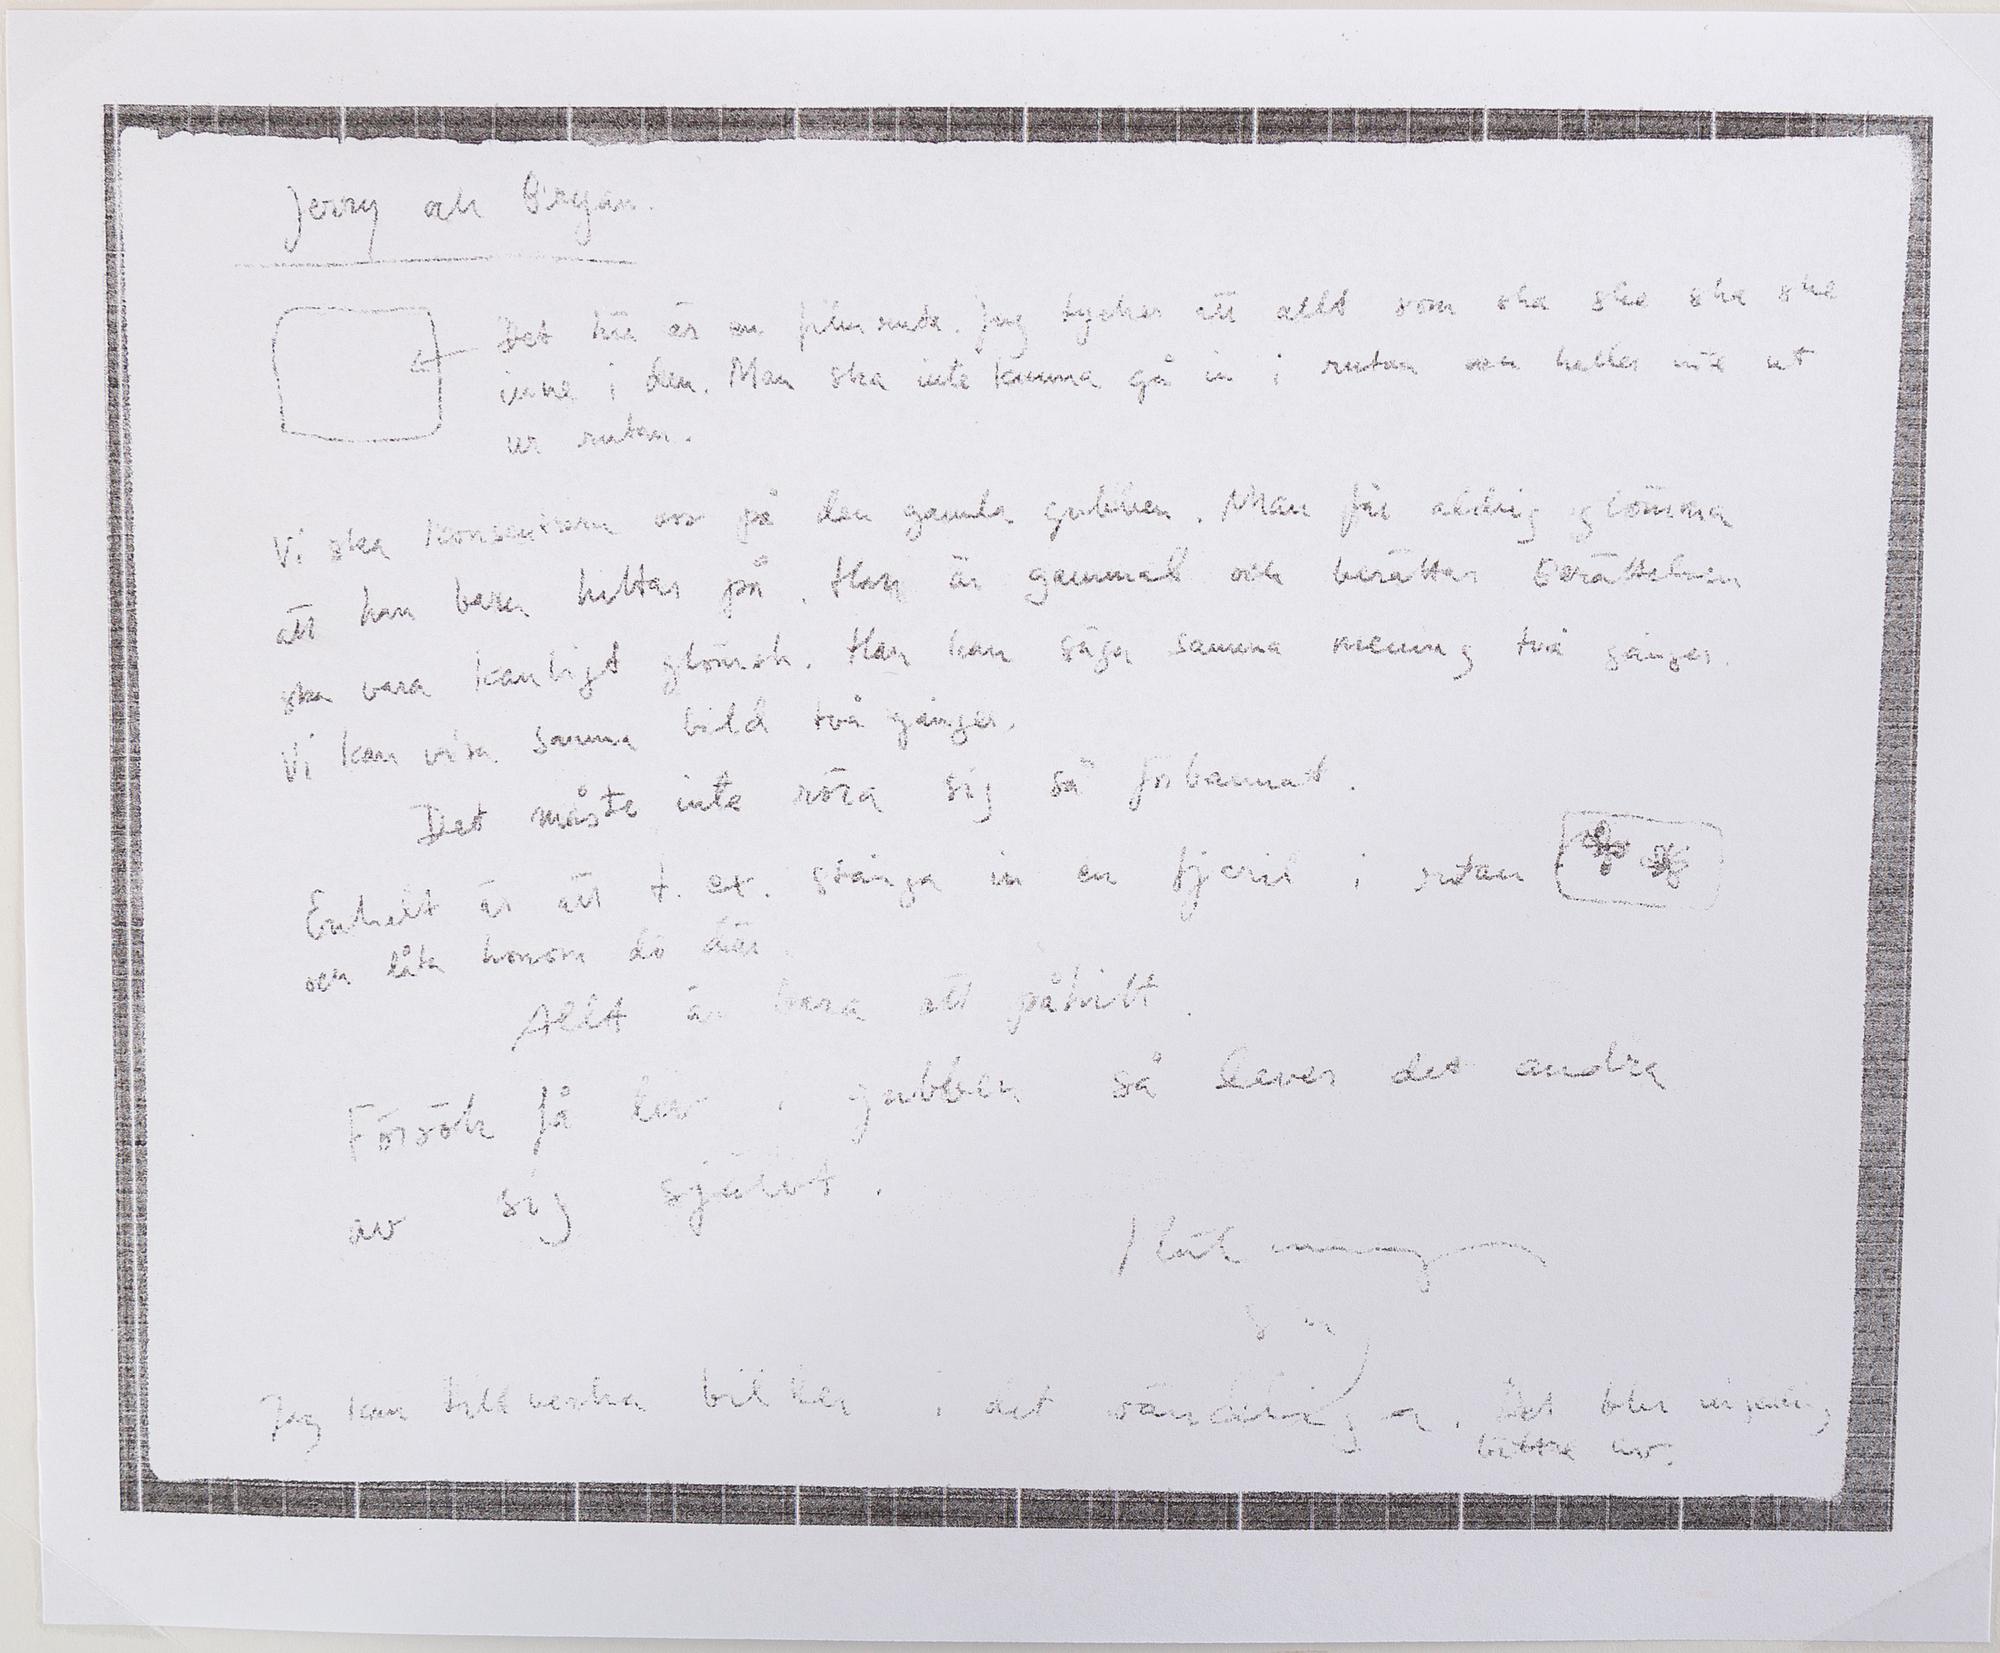 Jerry och Brejan.
Det här är en filmruta. Jag tycker att allt som ska ske ska ske
inne i den. Man ska inte kunna gå in i rutan och heller inte ut
ur rutan.
Vi ska koncentrera oss på den gamla gubben. Man får aldrig glömma
att han bara hittar på. Han är gammal och berättar berättelsen
ska vara kanligt glömsk. Han kan säga samma mening två gånger.
Vi kan visa samma bild två gånger.
Det måste inte röra sig så förbannat.
Enkelt är att t. ex. stänga in en fjäril i rutan
och låta honom dö där.
Allt är bara ett påhitt.
Försök få liv i gubben så lever det andra
av sig självt.
Jag kan tillverka bilder i det oändliga. Det blir ingenting
bättre av.